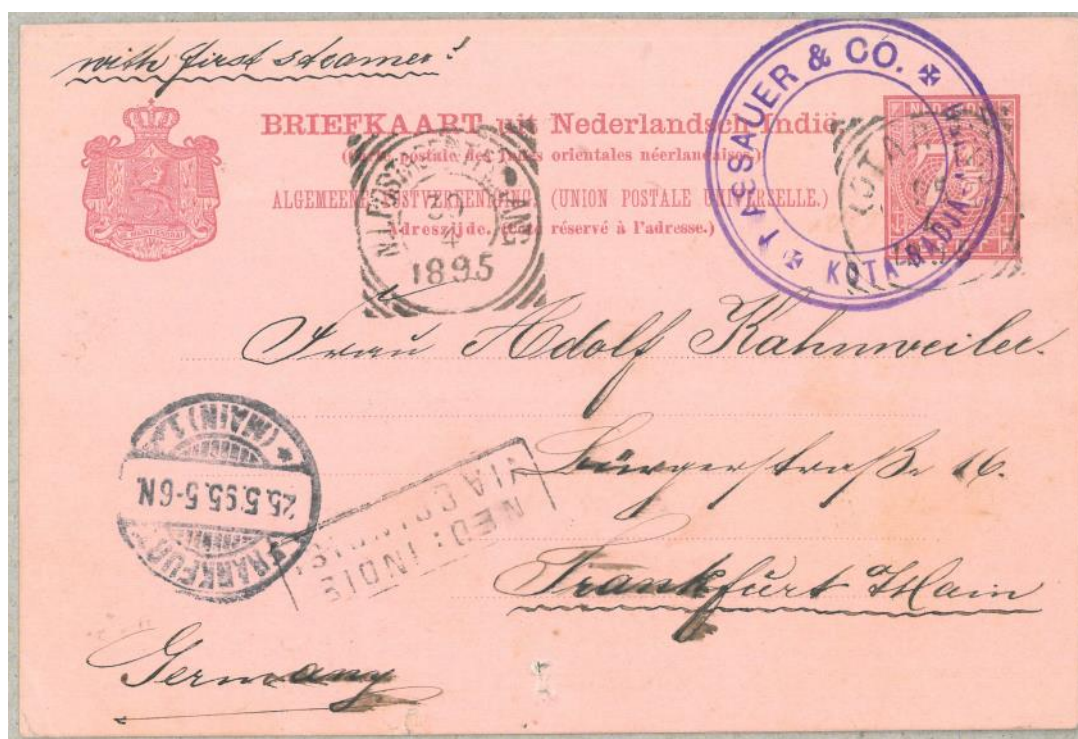 with first steamer!
BRIEFKAART uit Nederlandsch-Indië
(Carte postale des Indes orientales néerlandaises.)
ALGEMEENE POSTVEREENIGING (UNION POSTALE UNIVERSELLE.)
Adreszijde. (Côté réservé à l'adresse.)
JE MAINTIENDRAI
& CO.
KOTA-RADJA-ATJEH
N.I. POSTAGENT PENANG
30
4
1895
Frau Adolf Kahnweiler.
Bürgerstraße 16.
Frankfurt Main
Germany
FRANKFURT (MAIN) 1.
25.5.95.5-6N.
NED: INDIE
VIA